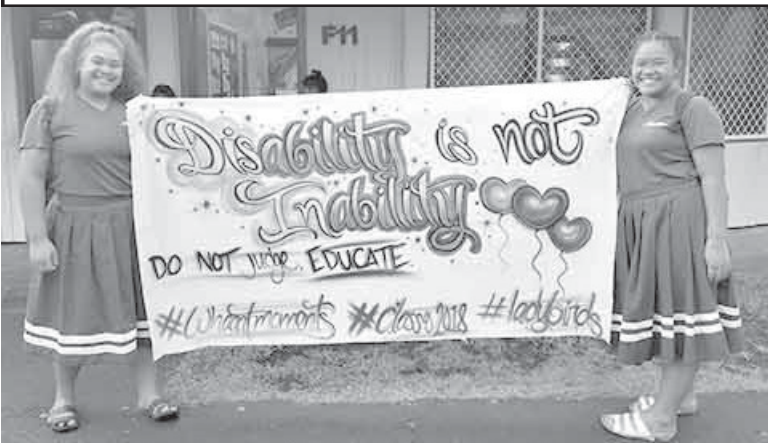 F11
Disability is not
Inability
DO NOT judge.. EDUCATE
#Class2018 #ladybirds